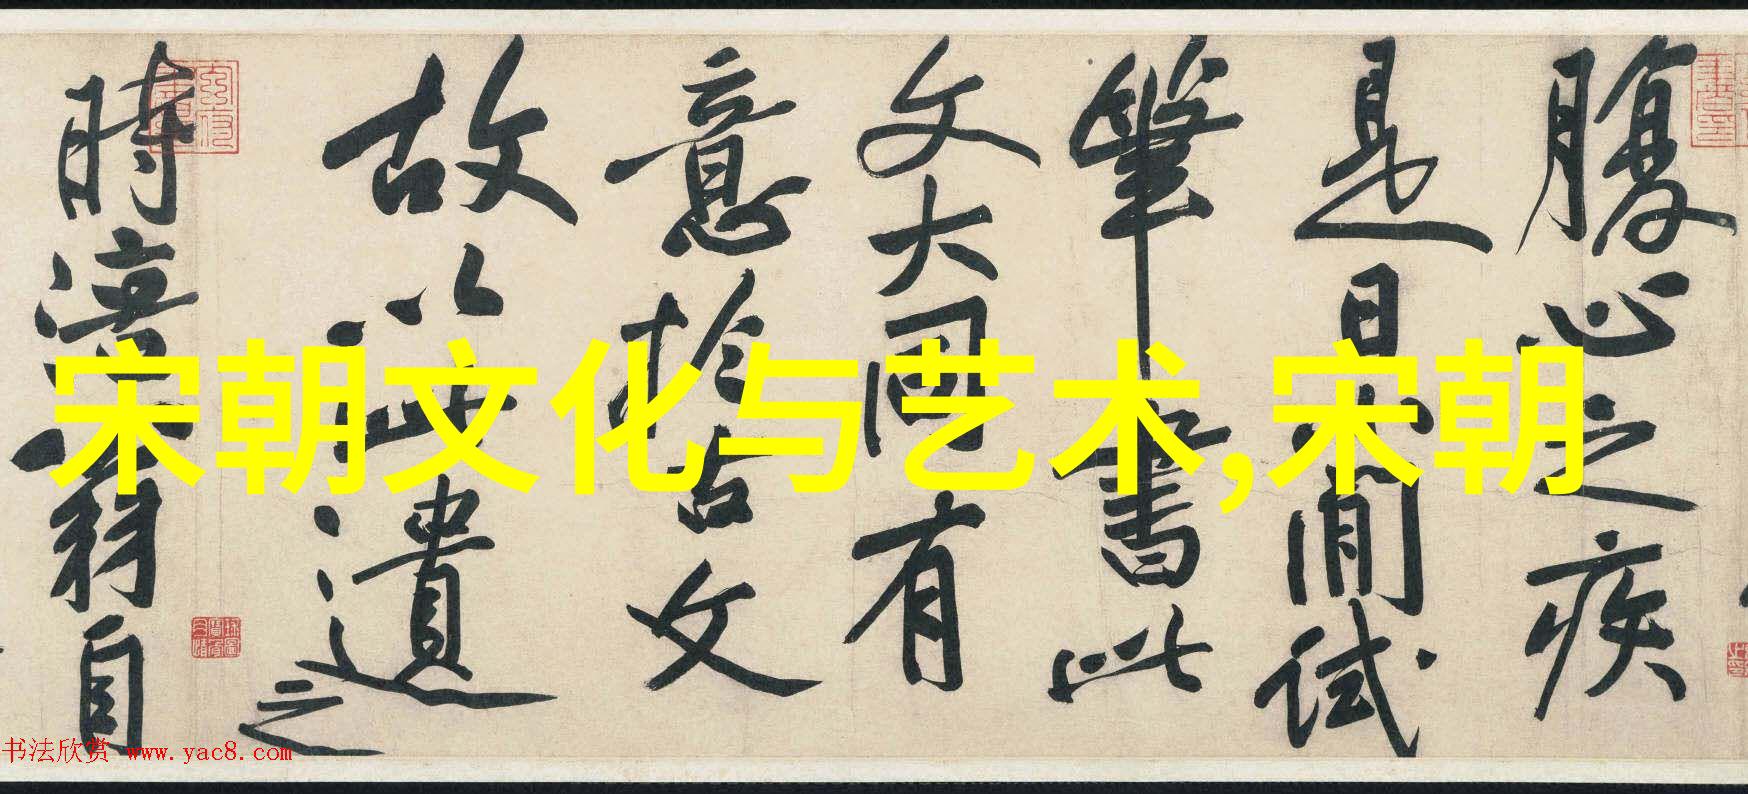 腹心之疾
是日閒試
筆書此
文大國有
意扵古文
故以此遺
之
時涪翁自
宋朝文化与艺术,宋朝
书法欣赏 www.yac8.com